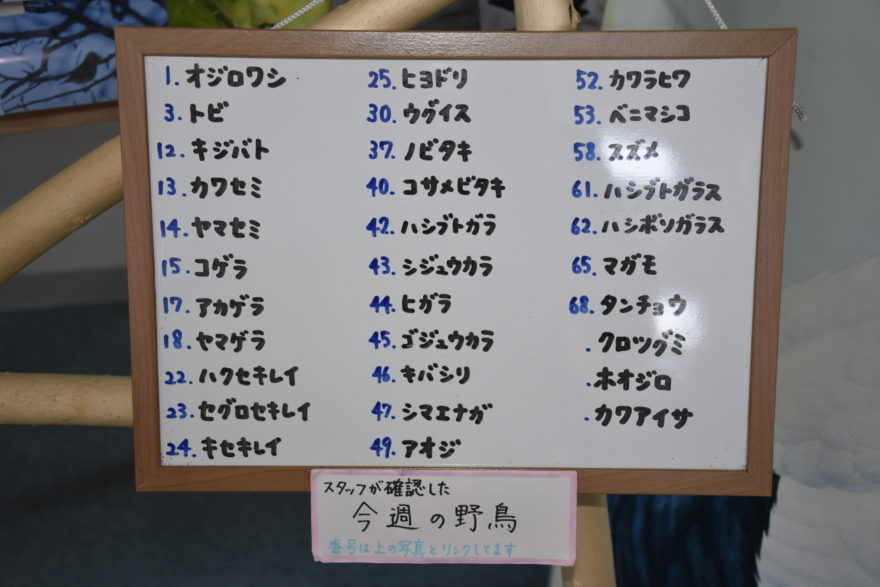 1. オジロワシ
3. トビ
12. キジバト
13. カワセミ
14. ヤマセミ
15. コゲラ
17. アカゲラ
18. ヤマゲラ
22. ハクセキレイ
23. セグロセキレイ
24. キセキレイ
25. ヒヨドリ
30. ウグイス
37. ノビタキ
40. コサメビタキ
42. ハシブトガラ
43. シジュウカラ
44. ヒガラ
45. ゴジュウカラ
46. キバシリ
47. シマエナガ
49. アオジ
52. カワラヒワ
53. ベニマシコ
58. スズメ
61. ハシブトガラス
62. ハシボソガラス
65. マガモ
68. タンチョウ
. クロツグミ
. ホオジロ
. カワアイサ
スタッフが確認した
今週の野鳥
番号は上の写真とリンクしてます